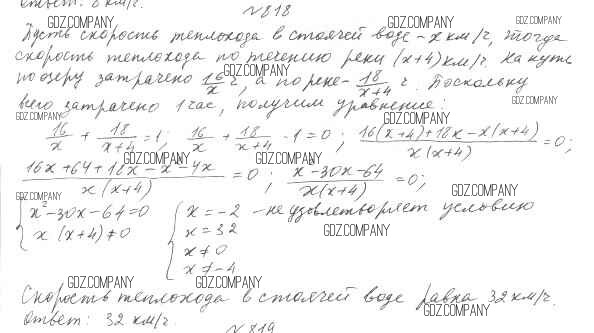 ответ: 8 км/г.
№818
Пусть скорость теплохода в стоячей воде - x км/г, тогда
скорость теплохода по течению реки (x+4) км/г. На путь
по озеру затрачено 16/x г, а по реке - 18/(x+4) г. Поскольку
всего затрачено 1 час, получим уравнение:
16/x + 18/(x+4) = 1; 16/x + 18/(x+4) - 1 = 0; (16(x+4)+18x-x(x+4))/(x(x+4)) = 0;
(16x+64+18x-x²-4x)/(x(x+4)) = 0; (x²-30x-64)/(x(x+4)) = 0;
{ x²-30x-64=0 { x=-2 - не удовлетворяет условию
x(x+4)≠0 x=32
x≠0
x≠-4
Скорость теплохода в стоячей воде равна 32 км/г.
Ответ: 32 км/г.
№819
GDZ.COMPANY GDZ.COMPANY GDZ.COMPANY
GDZ.COMPANY
GDZ.COMPANY GDZ.COMPANY GDZ.COMPANY
GDZ.COMPANY GDZ.COMPANY
GDZ.COMPANY GDZ.COMPANY
GDZ.COMPANY
GDZ.COMPANY GDZ.COMPANY
GDZ.COMPANY